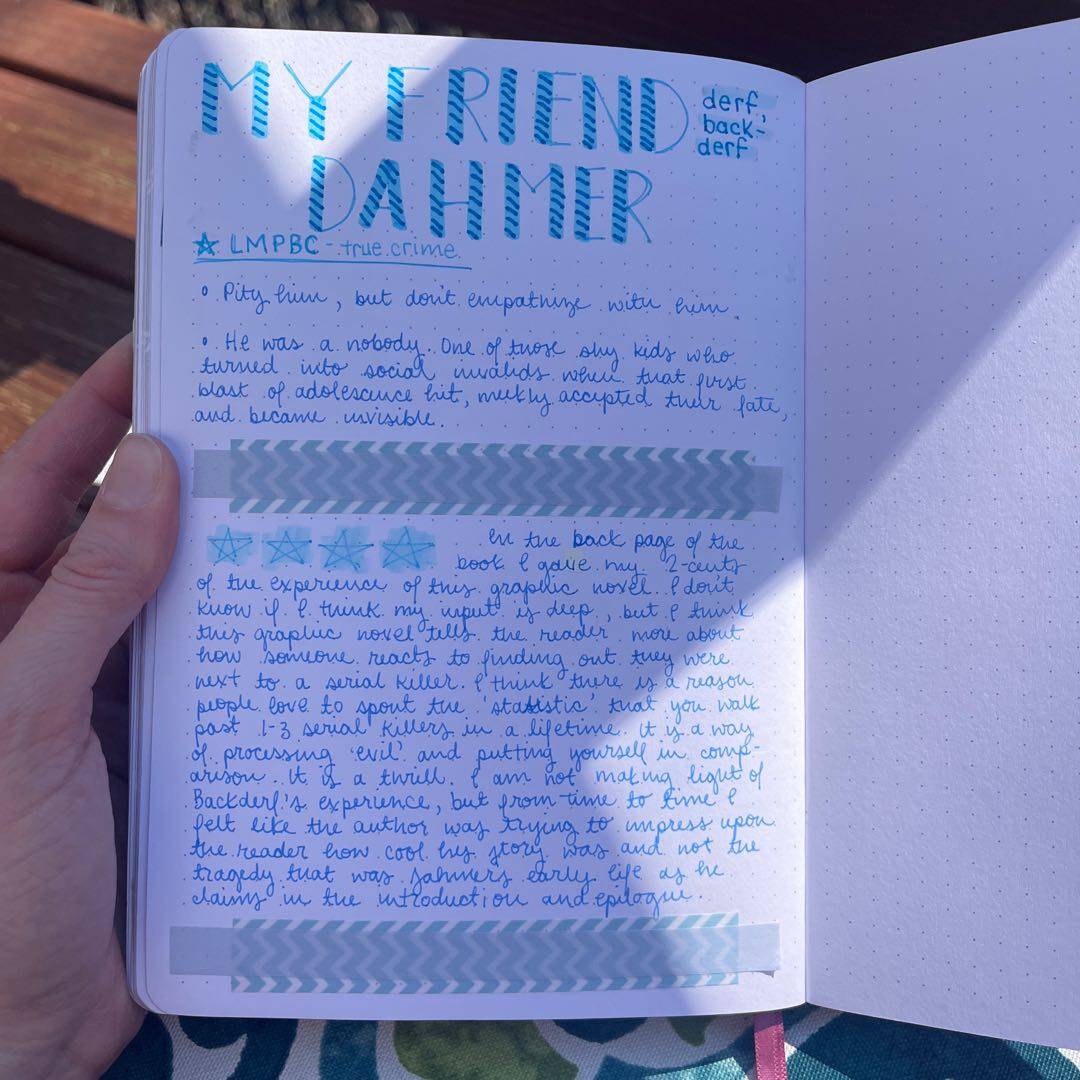 MY FRIEND
derf
back-
derf
DAHMER
LMPBC - true crime
Pity him, but don't empathize with him.
He was a nobody. One of those shy kids who
turned into social invalids when that first
blast of adolescence hit, meekly accepted their fate,
and became invisible.
In the back page of the
book I gave my 2-cents
of the experience of this graphic novel. I don't
know if I think my input is deep, but I think
this graphic novel tells the reader more about
how someone reacts to finding out they were
next to a serial killer. I think there is a reason
people love to spout the 'statistic' that you walk
past 1-3 serial killers in a lifetime. It is a way
of processing 'evil' and putting yourself in comp-
arison. It is a thrill. I am not making light of
Backderf's experience, but from time to time I
felt like the author was trying to impress upon
the reader how cool his story was and not the
tragedy that was Dahmers early life as he
claims in the introduction and epilogue.